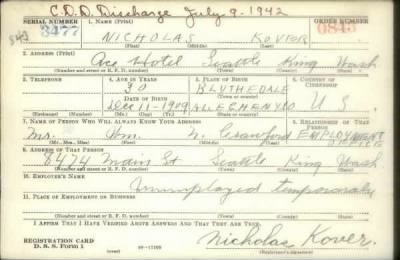 C.D.D. Discharge July-9-1942
SERIAL NUMBER 1. NAME (Print) ORDER NUMBER
3477 NICHOLAS KOVER 0845
(First) (Middle) (Last)
2. ADDRESS (Print)
Ace Hotel Seattle King Wash
(Number and street or R. F. D. number) (Town) (County) (State)
3. TELEPHONE 4. AGE IN YEARS 5. PLACE OF BIRTH 6. COUNTRY OF CITIZENSHIP
30 BLYTHEDALE
DATE OF BIRTH (Town or county)
Dec 11-1909 ALLEGHENY CO U.S.
7. NAME OF PERSON WHO WILL ALWAYS KNOW YOUR ADDRESS 8. RELATIONSHIP OF THAT PERSON
Mr. Wm. N. Crawford EMPLOYMENT OFFICE
(Mr., Mrs., Miss) (First) (Middle) (Last)
9. ADDRESS OF THAT PERSON
84 74 Main St Seattle King Wash
(Number and street or R. F. D. number) (Town) (County) (State)
10. EMPLOYER'S NAME
Unemployed temporarily
11. PLACE OF EMPLOYMENT OR BUSINESS
(Number and street or R. F. D. number) (Town) (County) (State)
I AFFIRM THAT I HAVE VERIFIED ABOVE ANSWERS AND THAT THEY ARE TRUE.
REGISTRATION CARD
D. S. S. Form 1 Nicholas Kover.
(Registrant's signature)